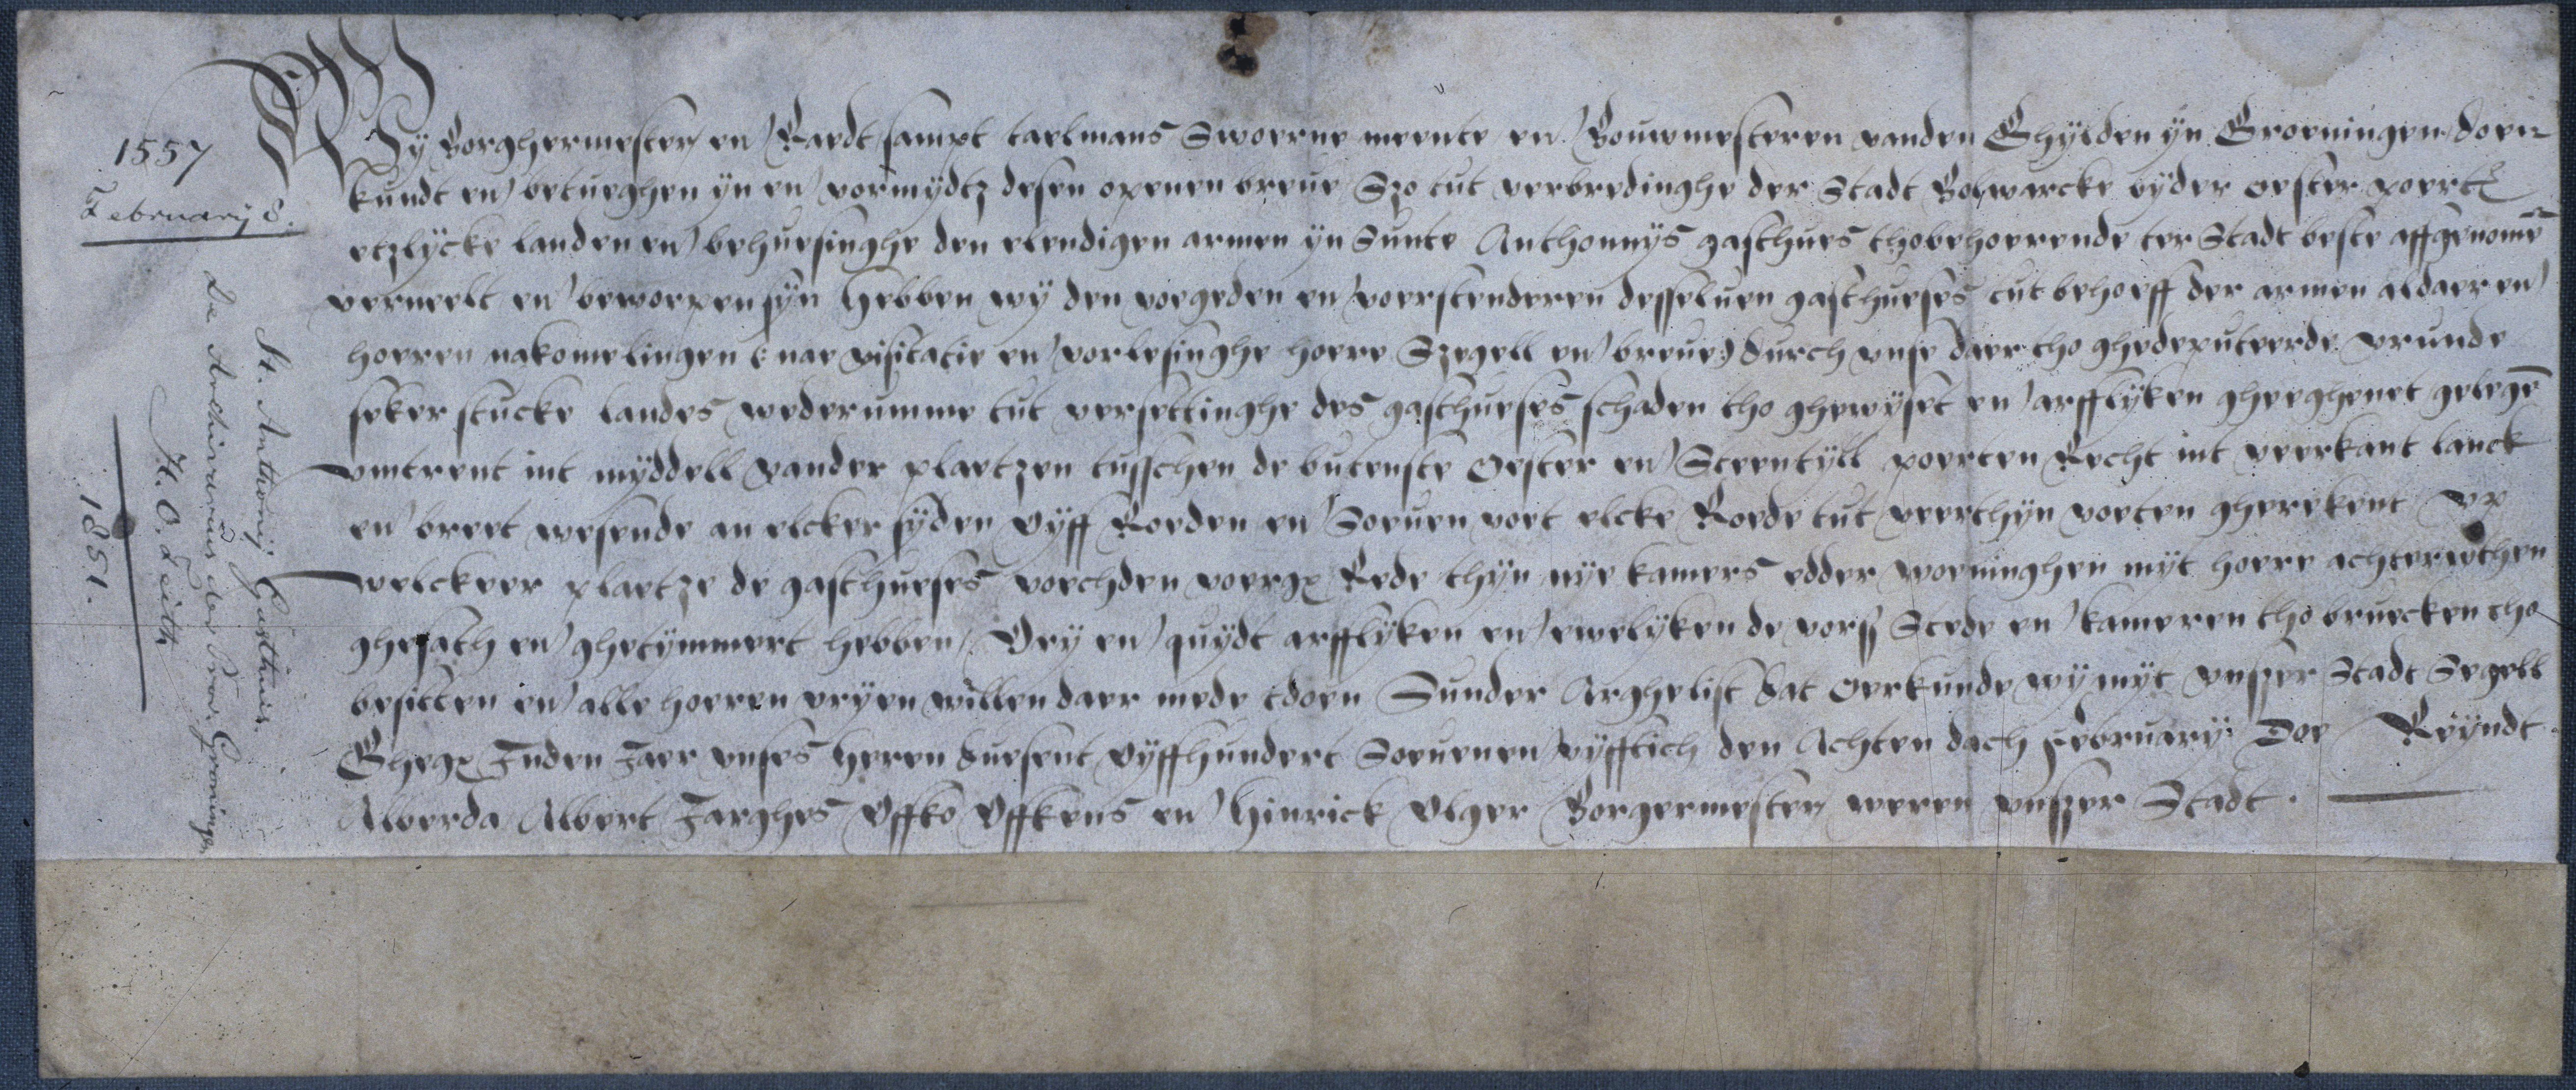 1557
February 8.
St. Anthonij Gasthuis.
De Archivarius der Prov. Groningen
H. O. Feith
1851.
Wy Borghermester en Raedt sampt taelmans Swoerne meente en Bouwmesteren vanden Ghylden yn Groeningen doen
kundt en betueghen yn en vormydtz desen openen breue Szo tut verbredinghe der Stadt Bolwarcke by der oester poert
etzlycke landen en behuesinghe den elendigen armen yn Sunte Anthonnys gasthues thobehoerende ter Stadt beste affgenomē
verneelt en beworpen syn Hebben wy den voegeden en voerstenderen desseluen gasthueses tut behoeff der armen aldaer en
hoeren nakomelingen (: nae visitatie en vorlesinghe hoere Szegell en breue) durch unse daer tho ghedeputeerde vrunde
seker stucke landes wederumme tut versettinghe des gasthueses schaden tho ghewyset en arfflyken gheeghenet gelegē
omtrent int myddell vander plaetzen tusschen de butenste Oester en Steentyll poerten Recht int veerkant lanck
en breet wesende an elcker syden vyff Roeden en Soeuen voet elcke Roede tut veerthyn voeten gherekent Up
welckeer plaetze de gasthueses voechden voergs Rede thyn nye kamers edder woeninghen myt hoere achterwthen
ghesath en ghetymmert hebben Vry en quydt arfflyken en ewelyken de vorss Stede en kameren tho bruecken tho
besitten en alle hoeren vryen willen daer mede tdoen Sunder Arghelist dat oerkunde wy myt unszer Stadt Segell
Ghegs Inden Jaer unses heren duesent Vyffhundert Soeuenen vyfftich den Achten dach February Doe Reyndt
Alberda Albert Jarghes Uffko Uffkens en Hinrick Ulger Borgermester weren unszer Stadt.